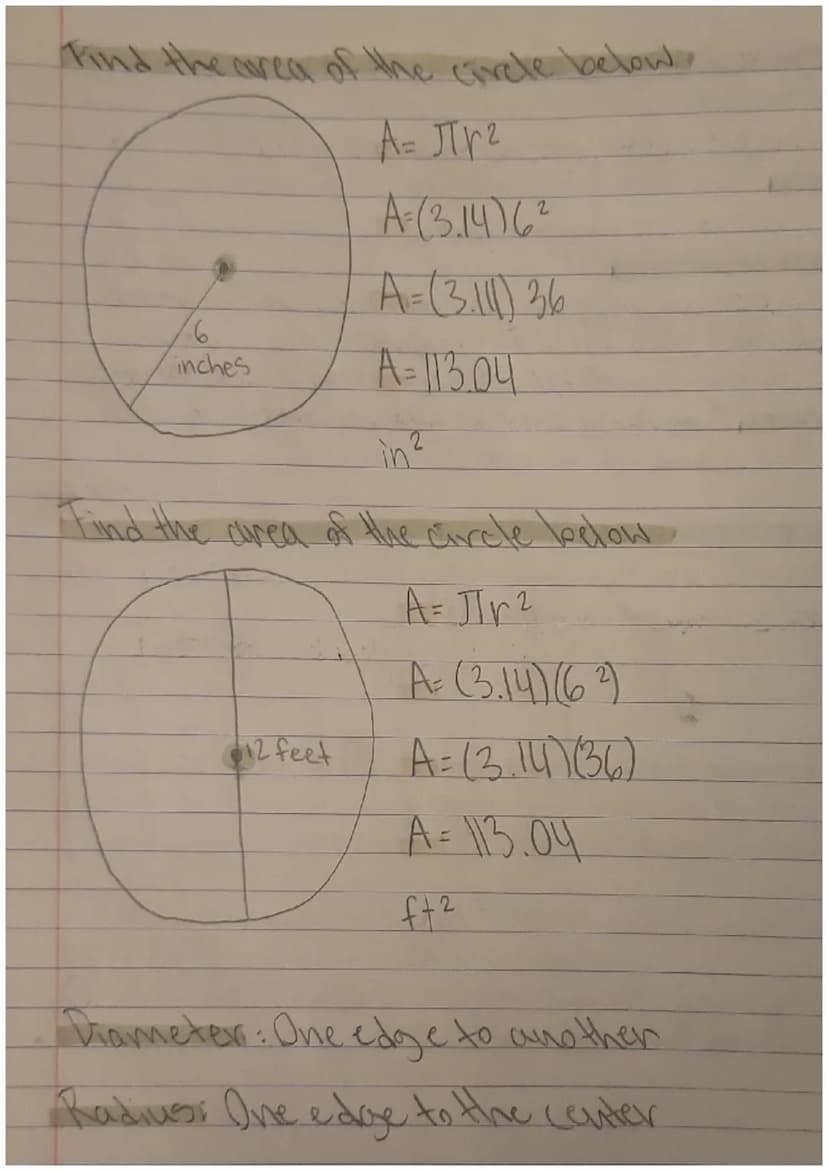 Find the area of the circle below
A= πr²
A=(3.14)6²
A=(3.14) 36
6
inches
A=113.04
in²
Find the area of the circle below
A= πr²
A= (3.14)(6²)
12 feet
A=(3.14)(36)
A= 113.04
ft²
Diameter: One edge to another
Radius: One edge to the center